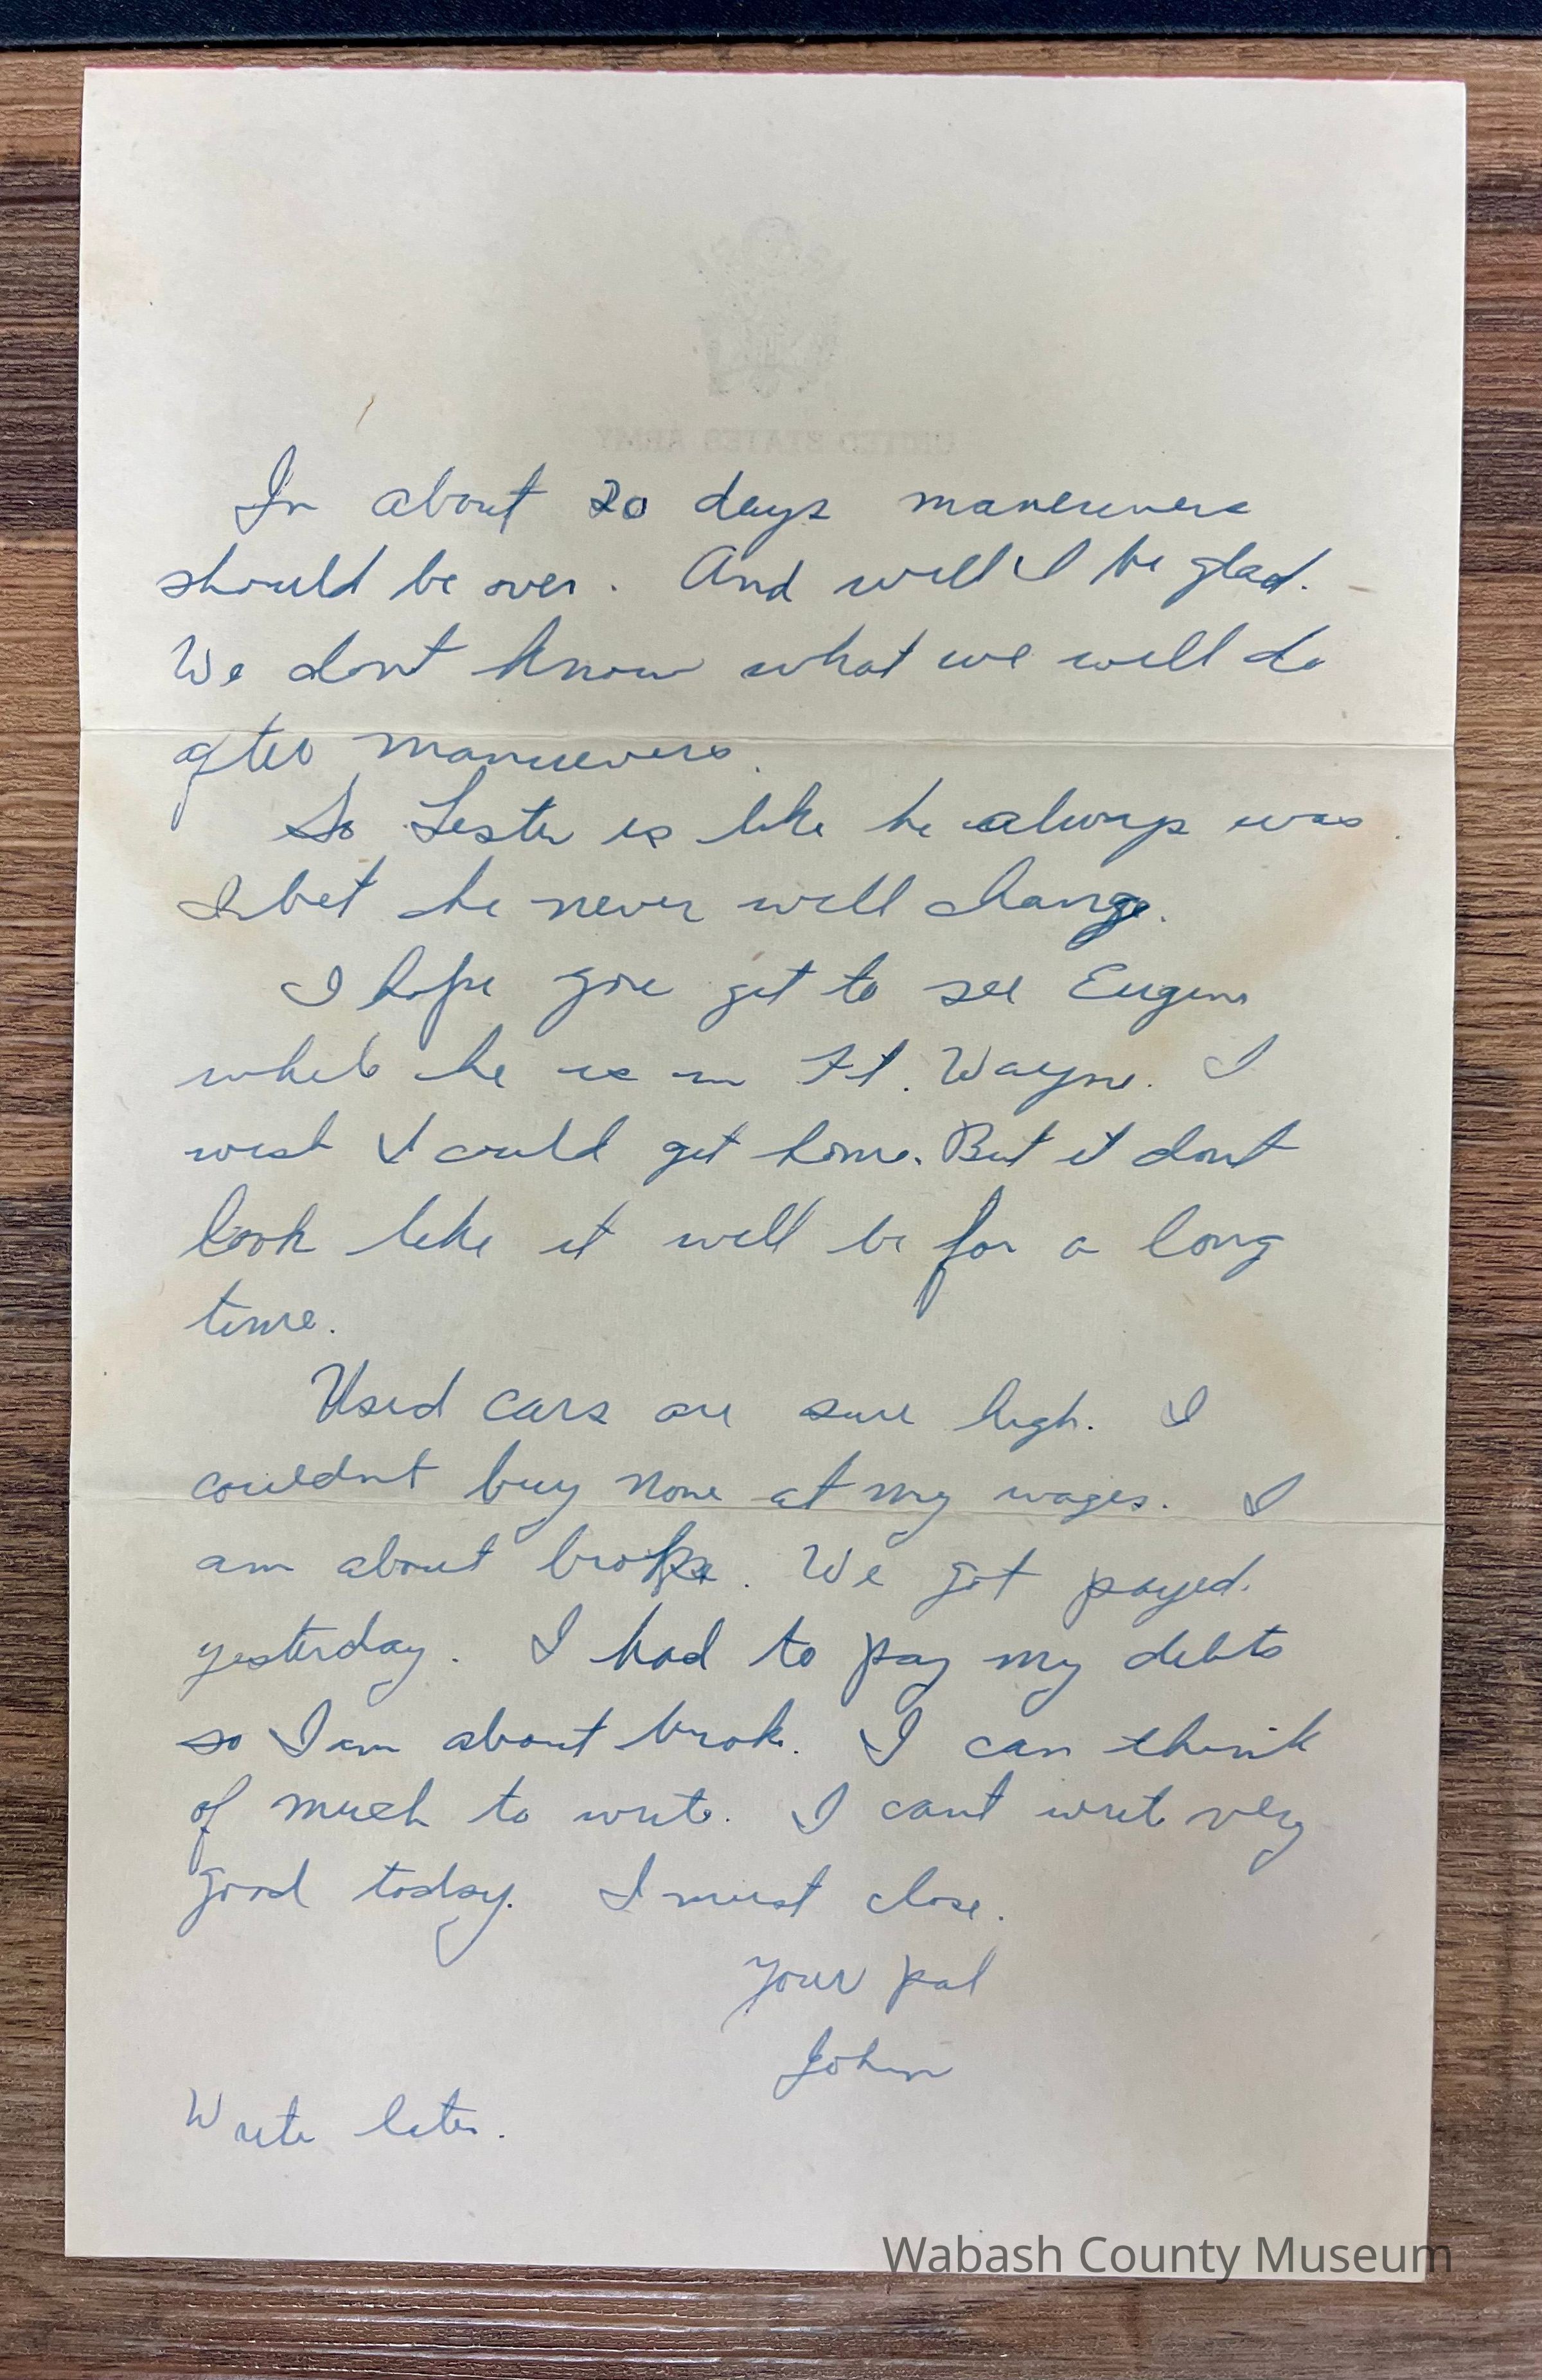 UNITED STATES ARMY
In about 20 days maneruvers
should be over. And will I be glad.
We dont know what we will do
after manuevers.
So Lester is like he always was.
I bet he never will change.
I hope you get to see Eugene
while he is in Ft. Wayne. I
wish I could get home. But it dont
look like it will be for a long
time.
Used cars are sure high. I
couldnt buy none at my wages. I
am about broke. We got payed
yesterday. I had to pay my debts
so I am about broke. I can think
of much to write. I cant write very
good today. I must close.
Your pal
John
Write later.
Wabash County Museum